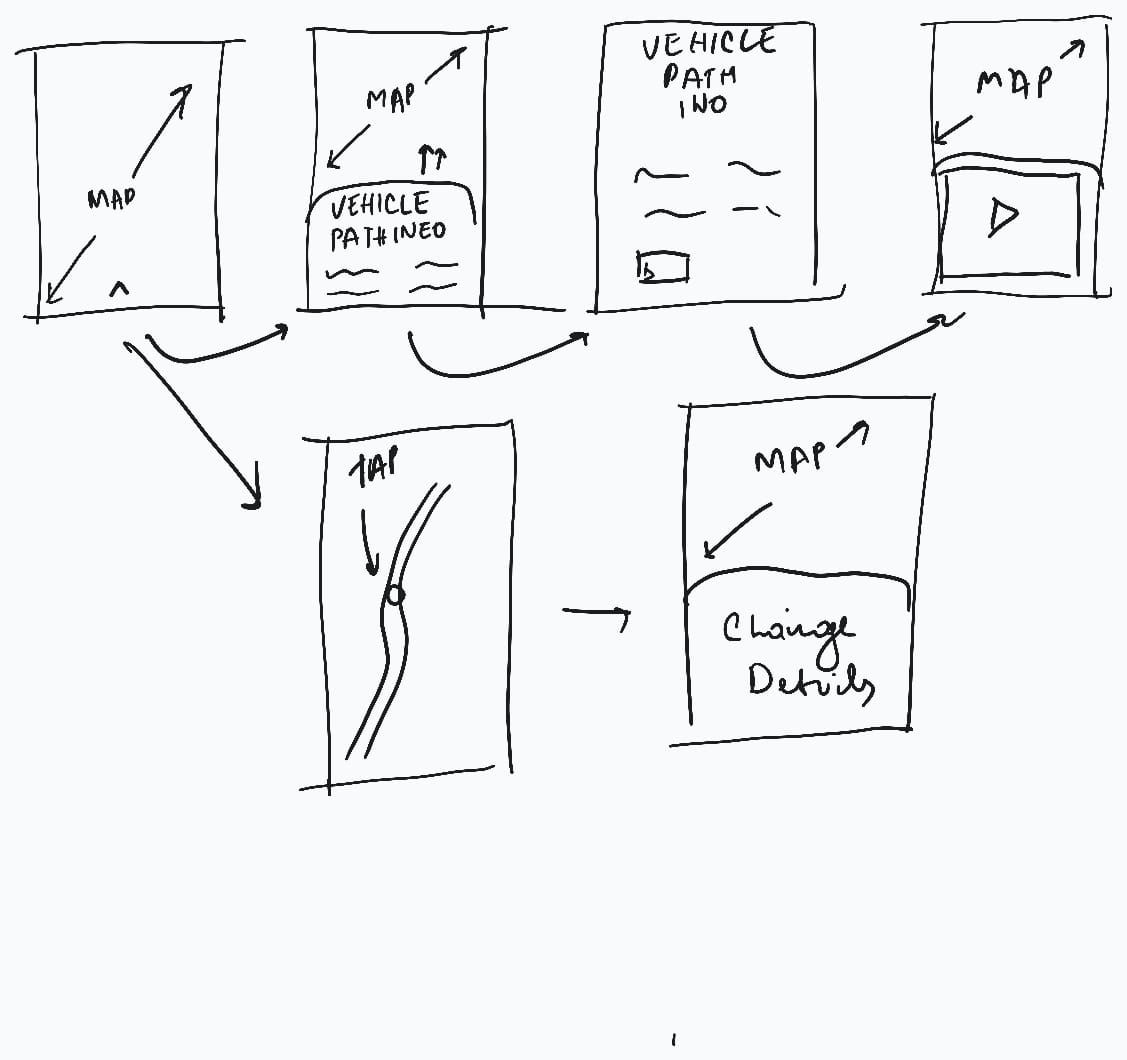 MAP
MAP
VEHICLE
PATH INFO
VEHICLE
PATH
INO
MAP
TAP
MAP
Change
Details